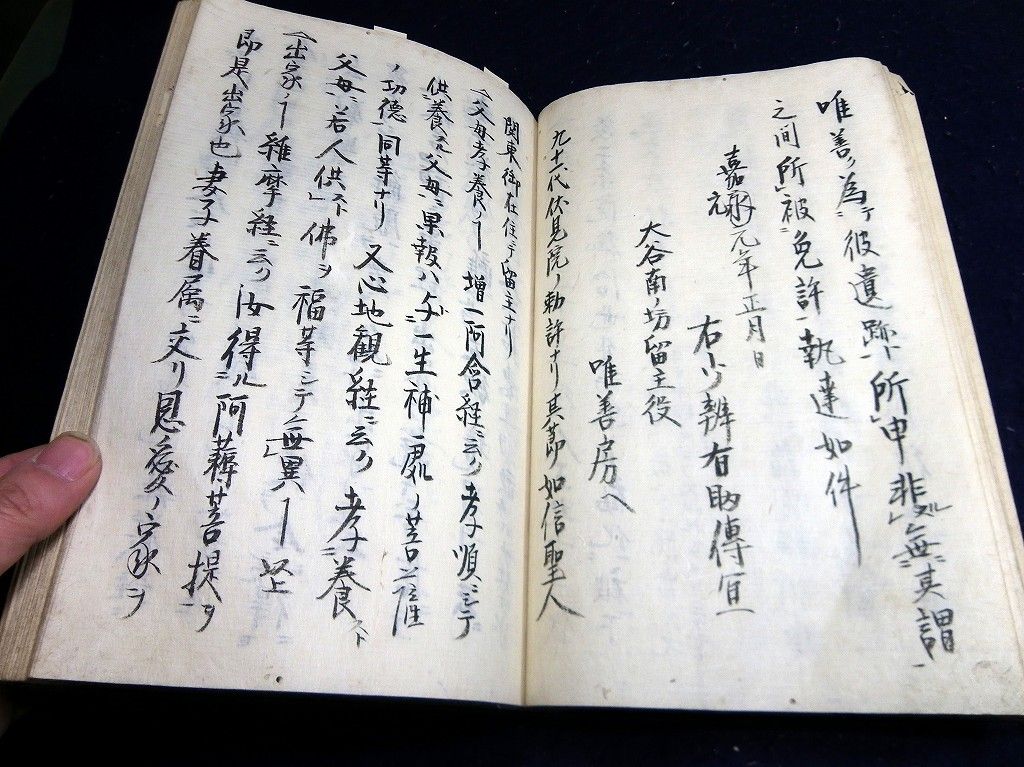 唯善ノ為ニテ彼遺跡ト所申非ルニ無其謂
之間所被免許執達如件
嘉元元年正月日
右少辨有助傳宣
大谷南ノ坊留主役
唯善房へ
九十一代伏見院ノ勅許ナリ其節如信聖人
関東御在住ニテ留主ナリ
父母孝養ノ┐ 増一阿含経ニ云ク孝順ニシテ
供養スル父母ニ果報ハ与一生補處ノ菩薩
ノ功徳同等ナリ 又心地観経ニ云ク 孝養スト
父母ニ若人供スト佛ヲ福等シテ無異┐ 已上
出家ノ┐ 維摩経ニ云ク 汝得ルハ阿耨菩提ヲ
即是出家也妻子眷属ニ交リ恩愛ノ家ヲ